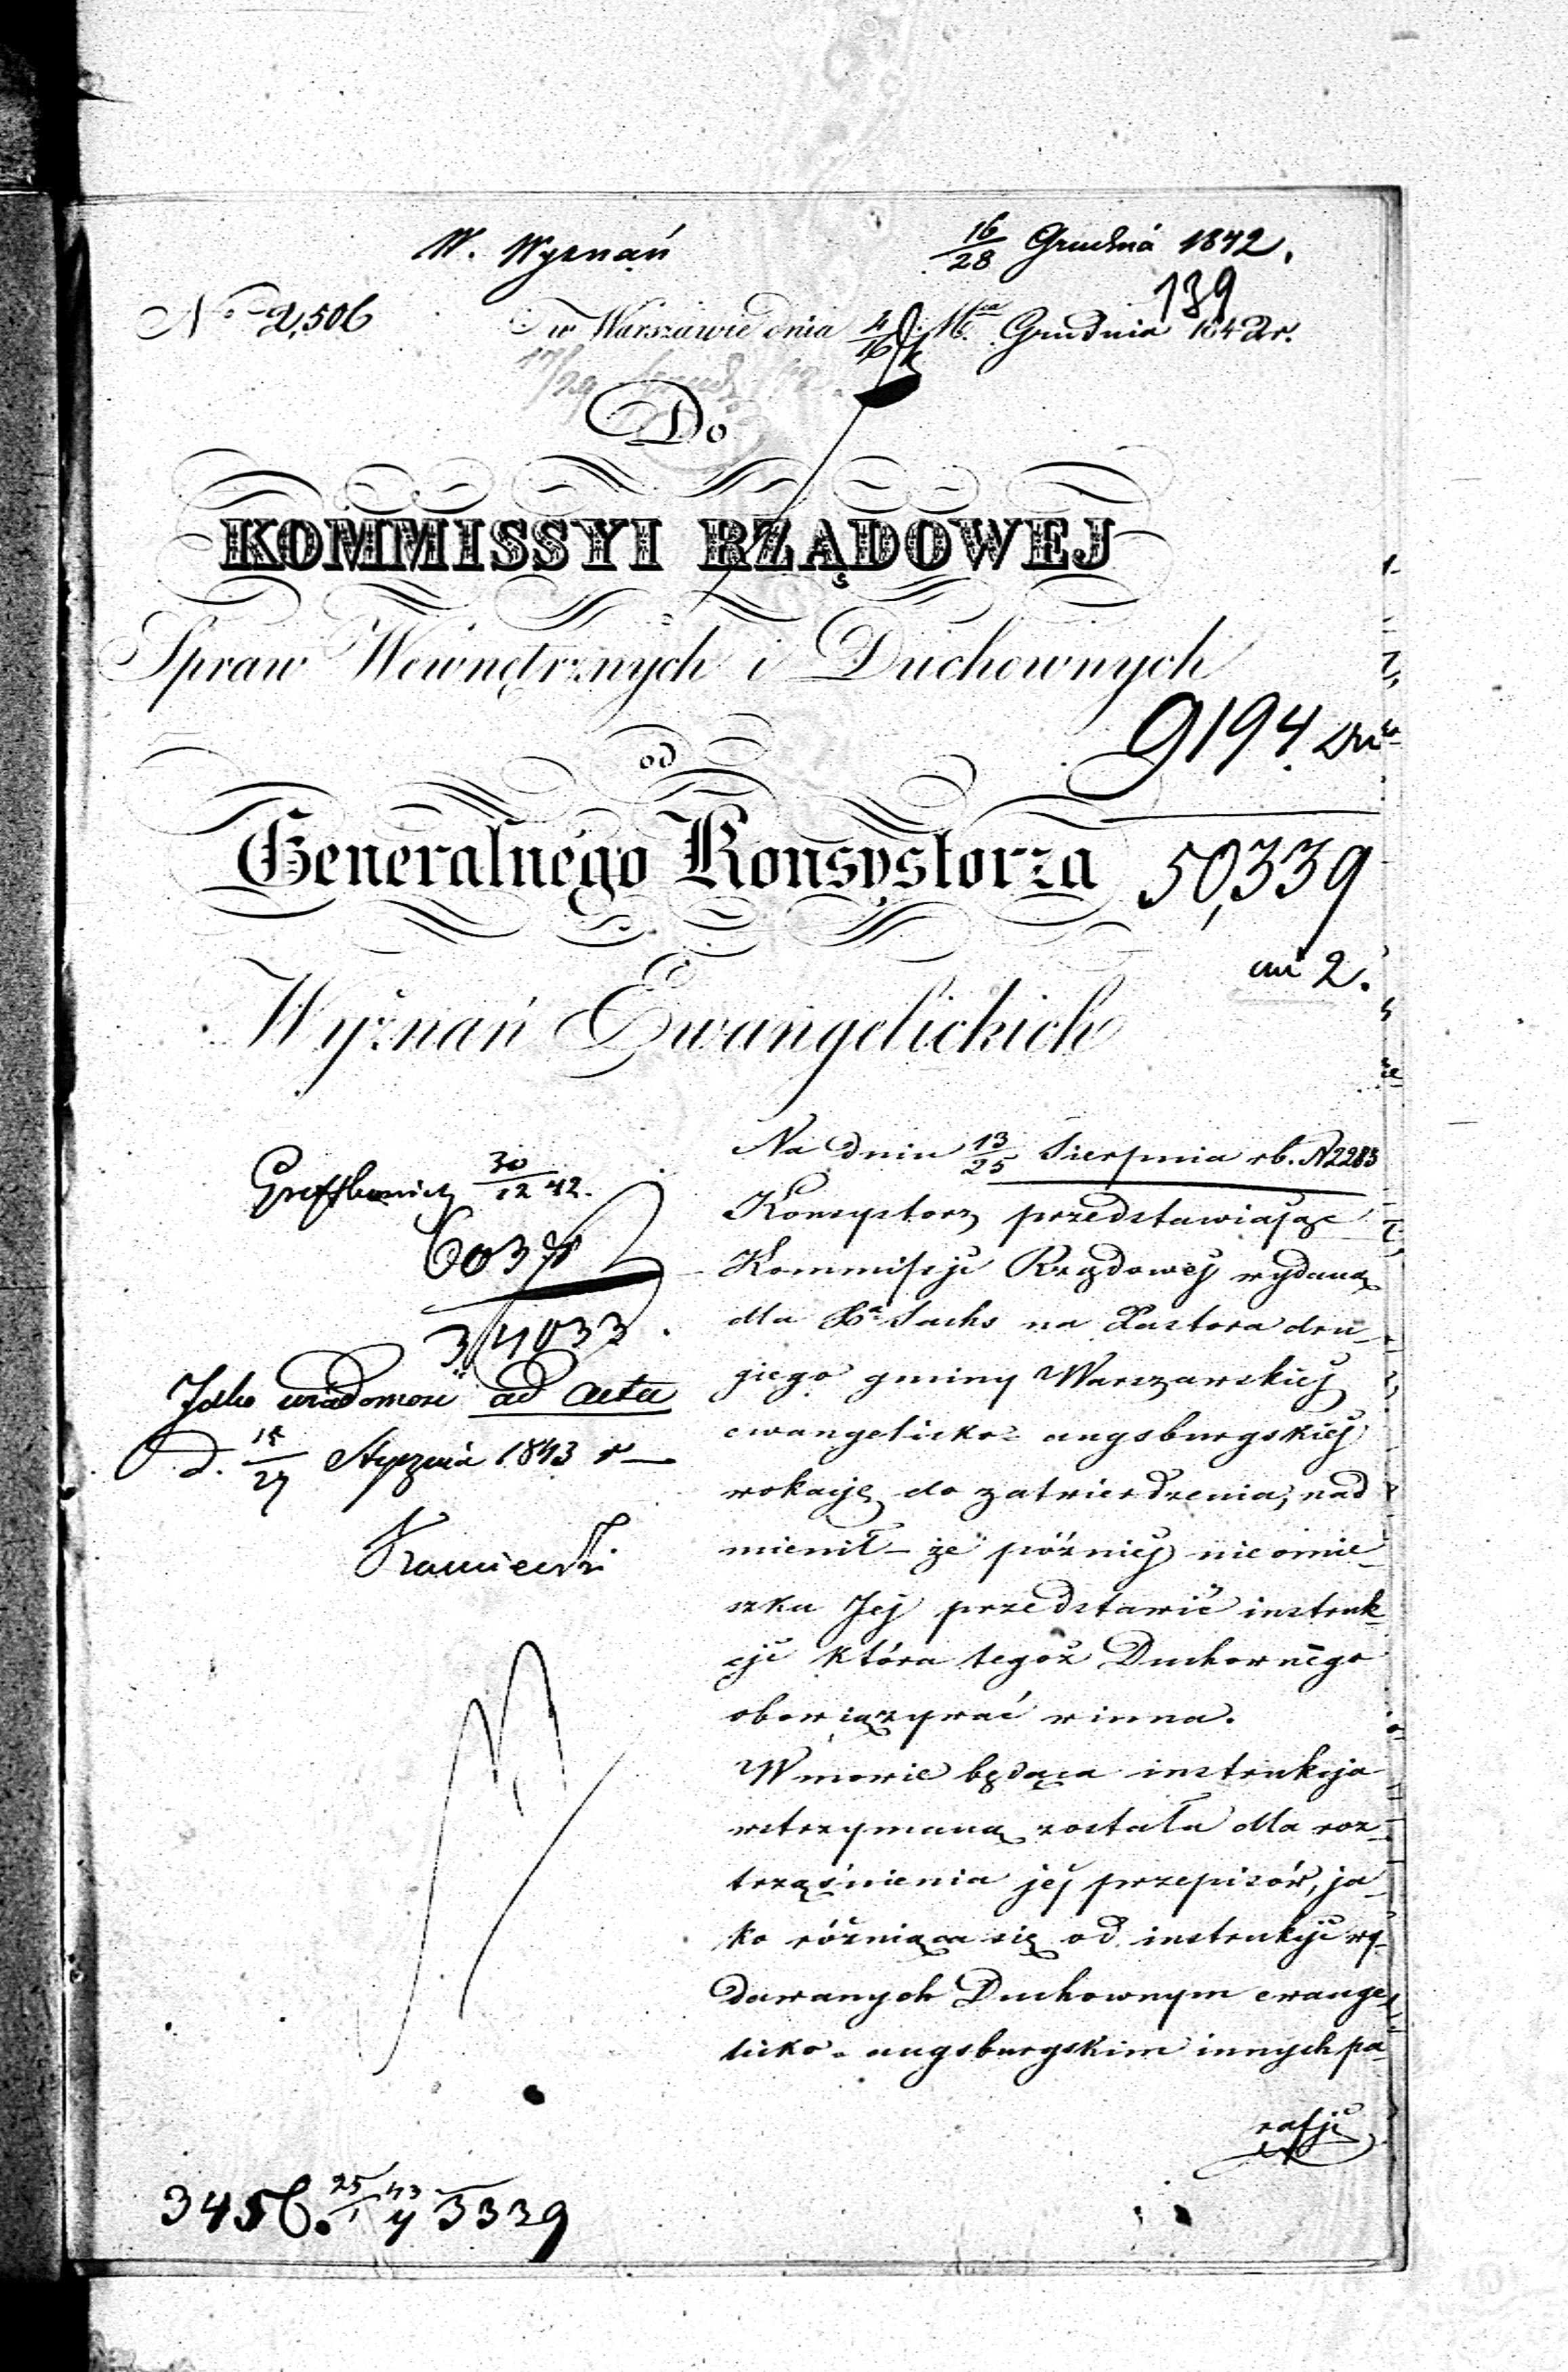 W. Wyznań
16/28 Grudnia 1842.
139
No 2,506
w Warszawie dnia 4/16 Mca Grudnia 1842 r.
17/29
Do
KOMMISSYI RZĄDOWEJ
Spraw Wewnętrznych i Duchownych
9194
od
Generalnego Konsystorza
50,339
an 2.
Wyznań Ewangelickich
30/12 42.
34033
Jako wiadomość ad acta
d. /27 Stycznia 1843 r
Na dniu 13/25 Sierpnia rb. N2283
Konsystorz przedstawiając
Kommissyi Rządowej wydaną
dla Xa Sachs na Pastora dru-
giego gminy Warszawskiej
ewangelicko-augsburgskiej
wokacyę do zatwierdzenia, nad
mienił że później nieomie-
szka Jej przedstawić instruk-
cyi która tegoż Duchownego
obowiązywać winna.
W mowie będąca instrukcja
wstrzymaną została dla roz-
trząśnienia jej przepisów, ja-
ko różniąca się od instrukcyi wy-
dawanych Duchownym ewange-
licko-augsburgskim innych pa-
rafji
3456. 25/1 43 y 3339